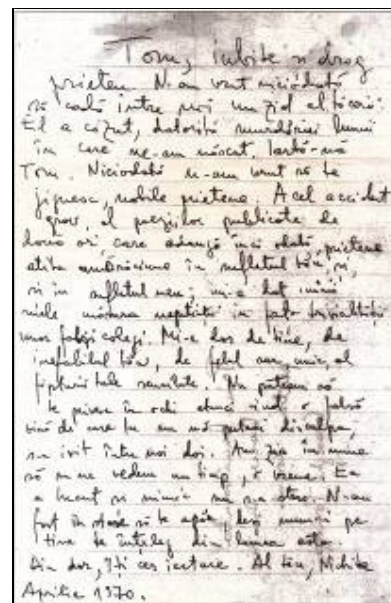 Tom, iubite și drag
prieten. N-am vrut niciodată
să cadă între noi un zid al tăcerii.
El a căzut, datorită murdăriei lumii
în care ne-am născut. Iartă-mă
Tom. Niciodată n-am vrut să te
jignesc, nobile prietene. Acel accident
grav, al poeziilor publicate de
două ori, care adaugă încă odată, prietene
atîta amărăciune în sufletul tău, și,
și în sufletul meu, mi-a dat inimii
mele măsura neputinței în fața trivialității
unor falși colegi. Mi-e dor de tine, de
inefabilul tău, de felul rar, unic, al
făpturii tale sensibile. Nu puteam să
te privesc în ochi atunci cînd o falsă
vină de care nu mă puteam disculpa,
s-a ivit între noi doi. Am zis în mine
să nu ne vedem un timp, o vreme. Ea
a trecut și nimic nu s-a șters. N-am
fost în stare să te ajut, deși numai pe
tine te înțeleg din lumea asta.
Din dor, îți cer iertare. Al tău, Nichita
Aprilie 1970.